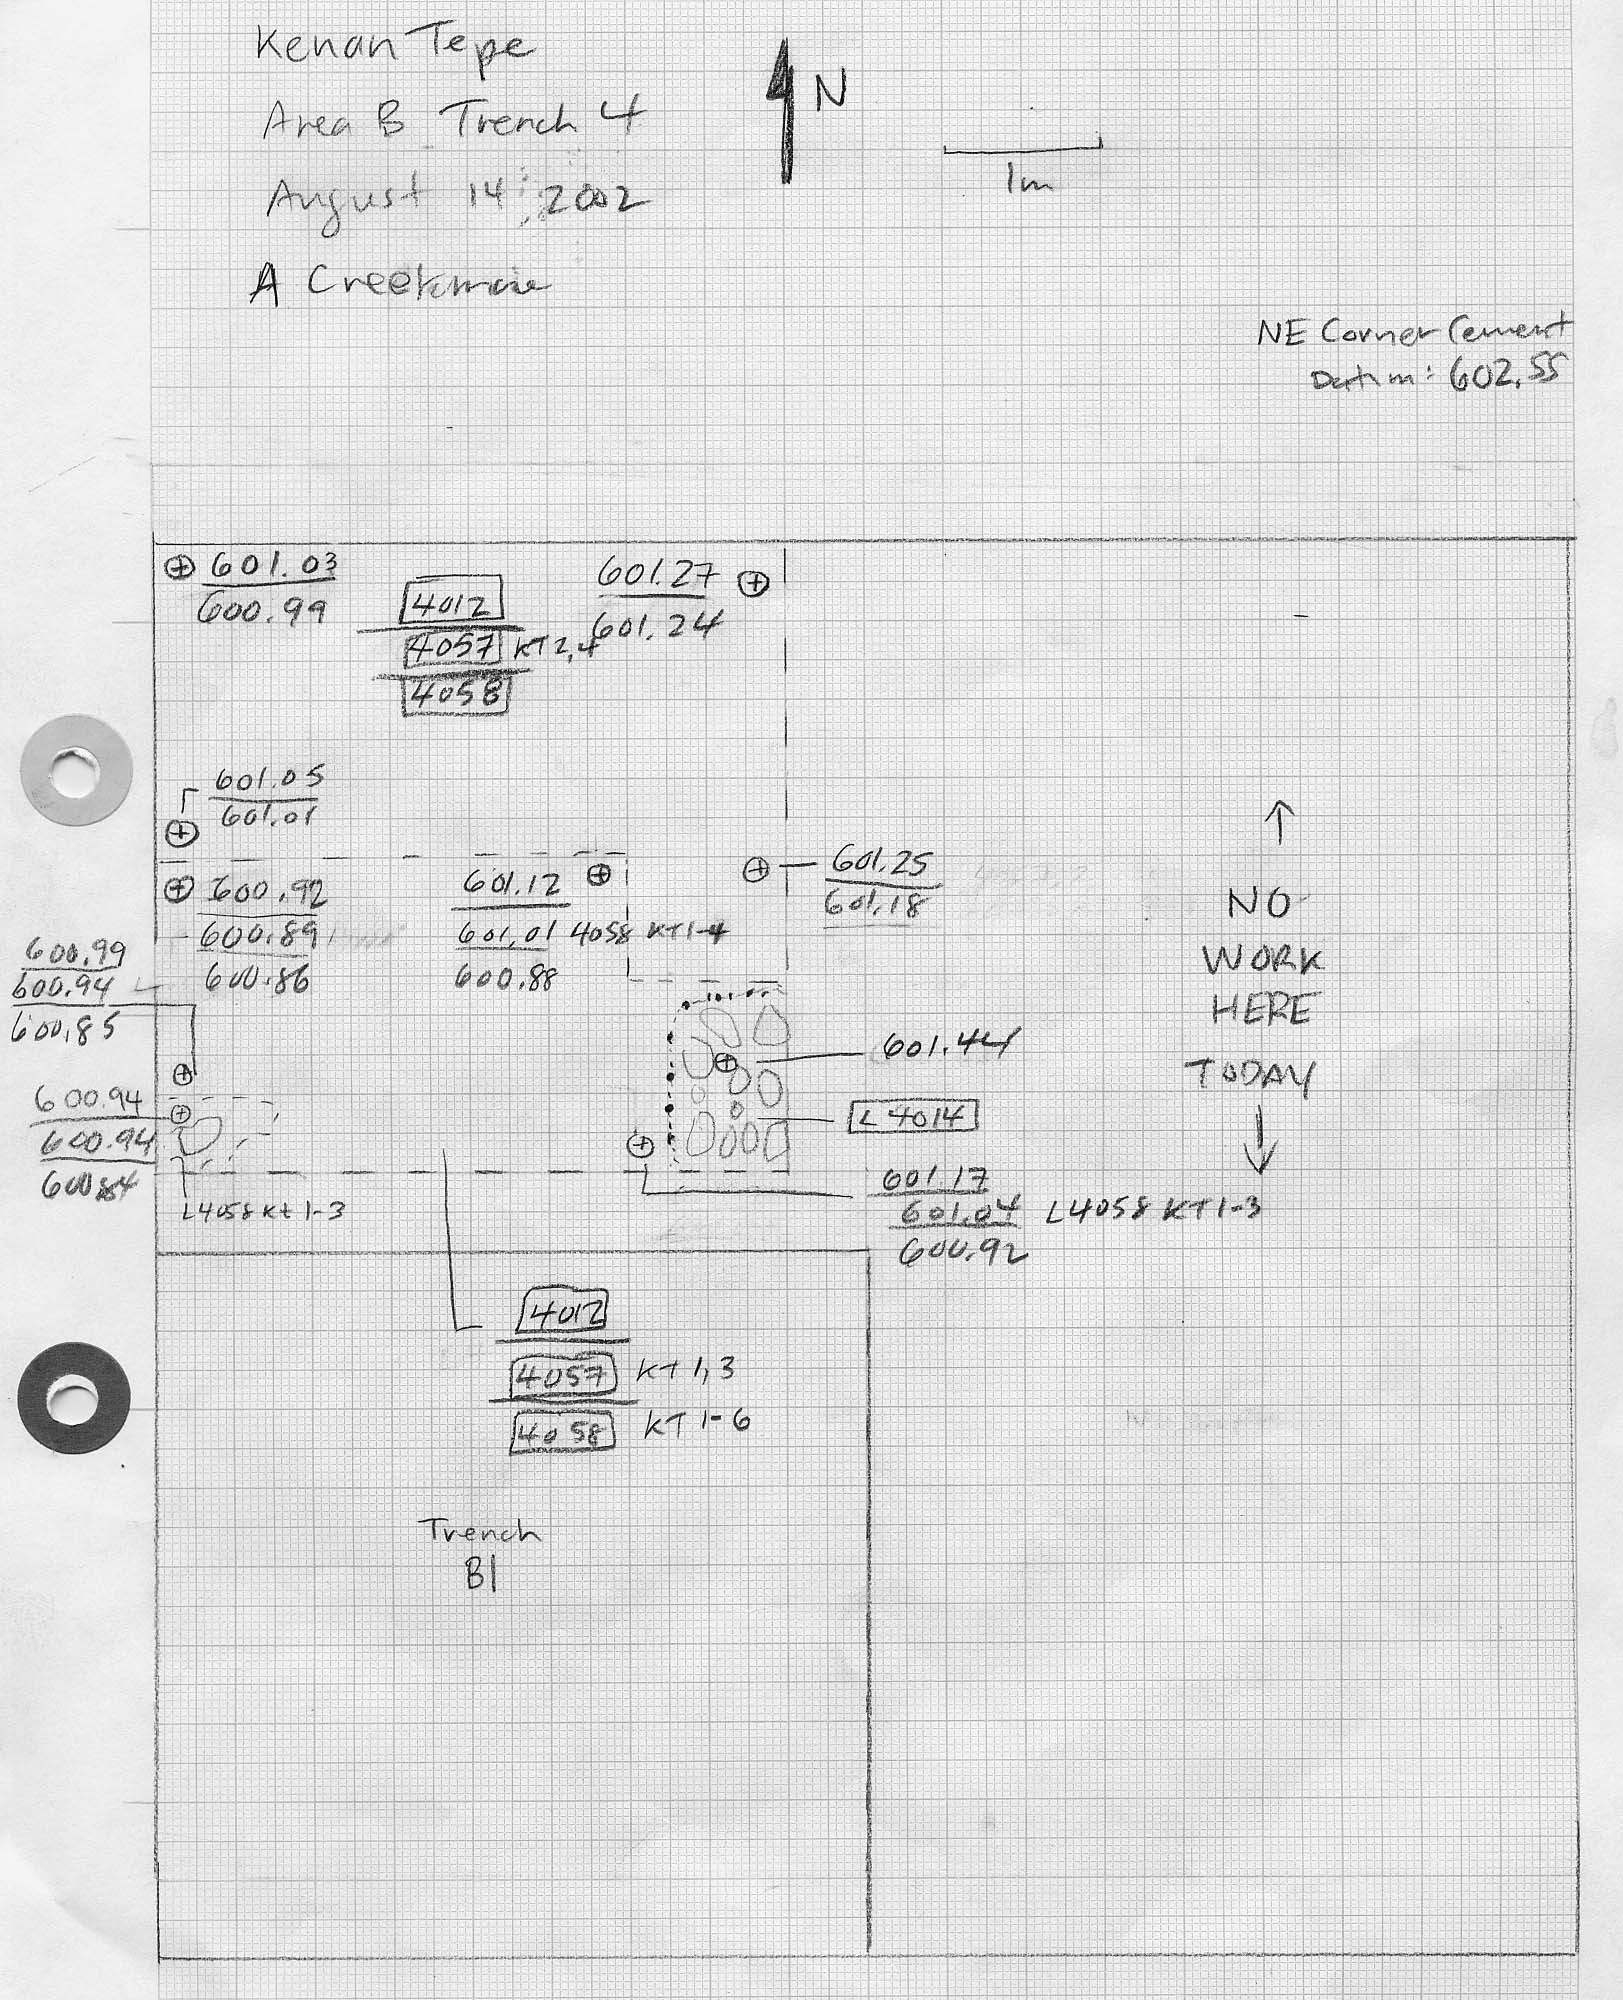 Kenan Tepe
Area B Trench 4
August 14, 2002
A Creekmore
N
1m
NE Corner Cement
Datum: 602.55
601.03
600.99
4012
4057 KT 2,4
4058
601.27
601.24
601.05
601.01
600.92
600.89
600.86
601.12
601.01 4058 KT 1-4
600.88
601.25
601.18
NO
WORK
HERE
TODAY
600.99
600.94
600.85
601.44
L 4014
600.94
600.94
600.84
L4058 KT 1-3
601.17
601.04 L4058 KT 1-3
600.92
4012
4057 KT 1,3
4058 KT 1-6
Trench
B1